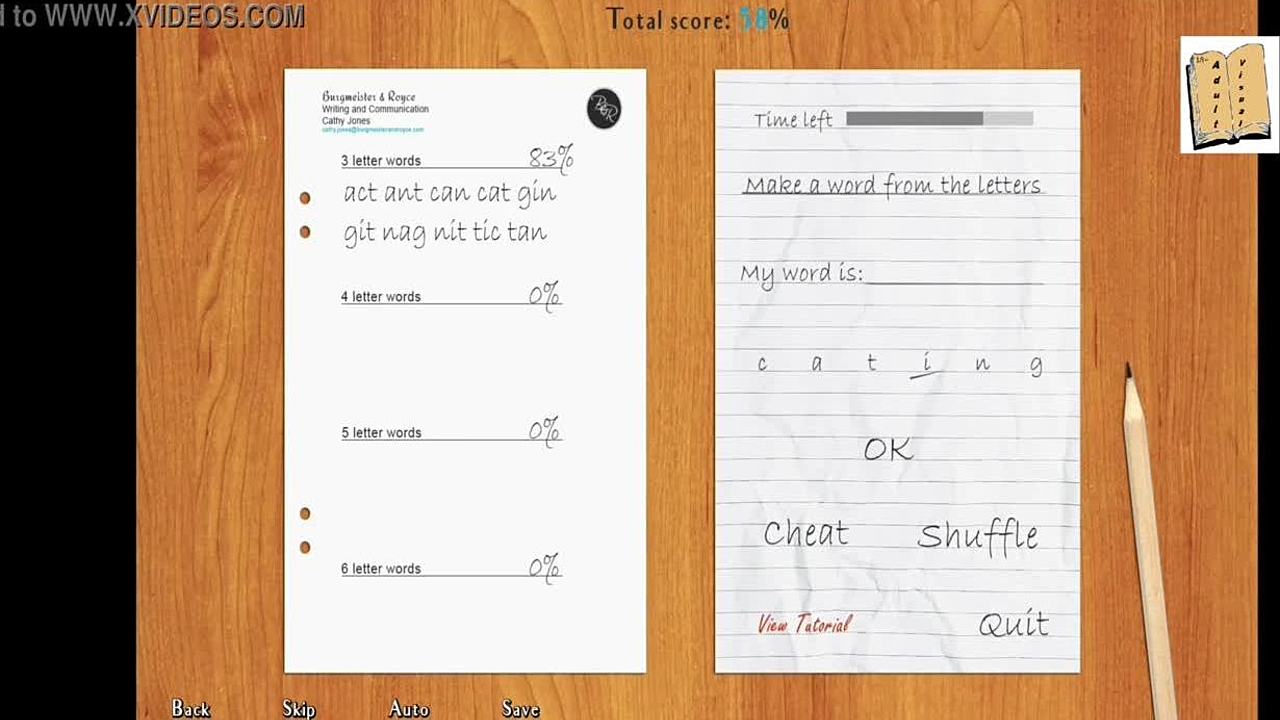 d to WWW.XVIDEOS.COM
Total score: 58%
18+
Adult Visual
Burgmeister & Royce
Writing and Communication
Cathy Jones
cathy.jones@burgmeisterandroyce.com
B&R
3 letter words 83%
act ant can cat gin
git nag nit tic tan
4 letter words 0%
5 letter words 0%
6 letter words 0%
Time left
Make a word from the letters
My word is:
c a t i n g
OK
Cheat Shuffle
View Tutorial Quit
Back Skip Auto Save